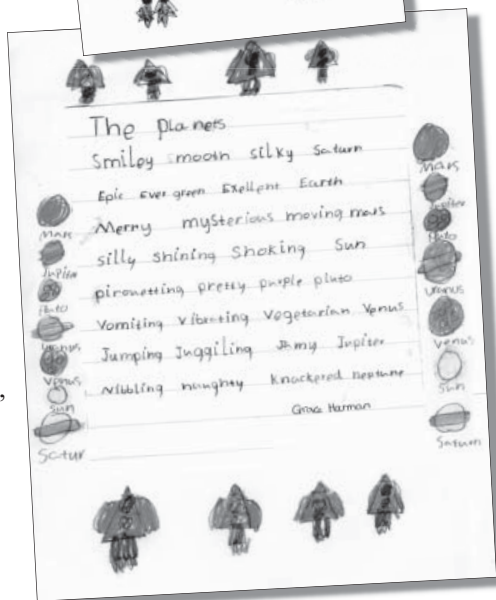 The planets
Smiley smooth silky Saturn
Epic Ever green Exellent Earth
Merry mysterious moving mars
silly shining Shaking Sun
pirouetting pretty purple pluto
Vomiting Vibrating Vegetarian Venus
Jumping Juggiling Jupiter
Nibbling naughty Knackered neptune
Grace Harman
Mars
Jupiter
Pluto
Uranus
Venus
Sun
Satur
Mars
Jupiter
Pluto
Uranus
Venus
Sun
Saturn
,